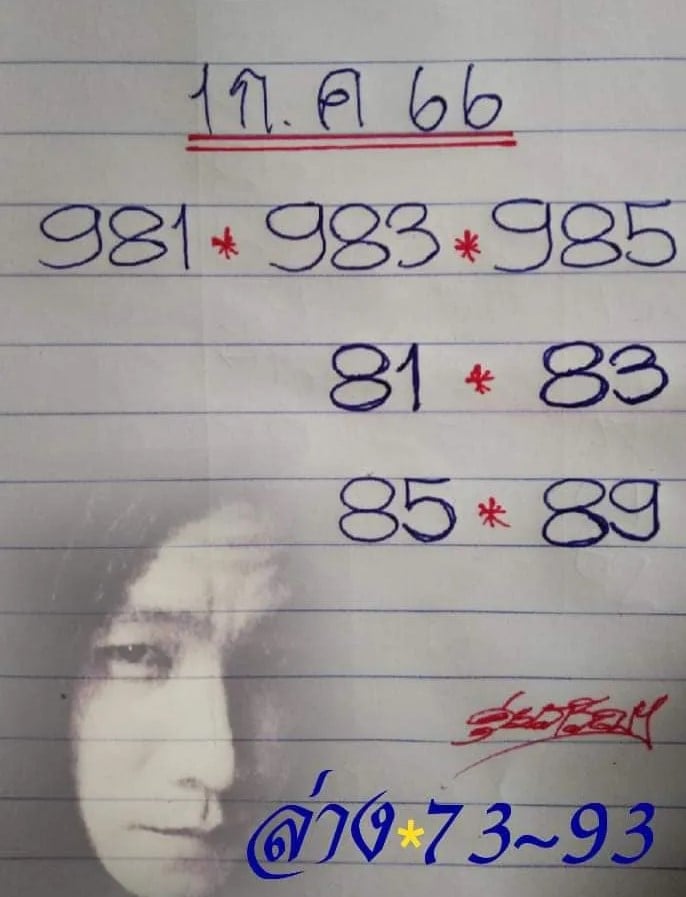 1 ก.ค 66
981 * 983 * 985
81 * 83
85 * 89
ล่าง*73~93